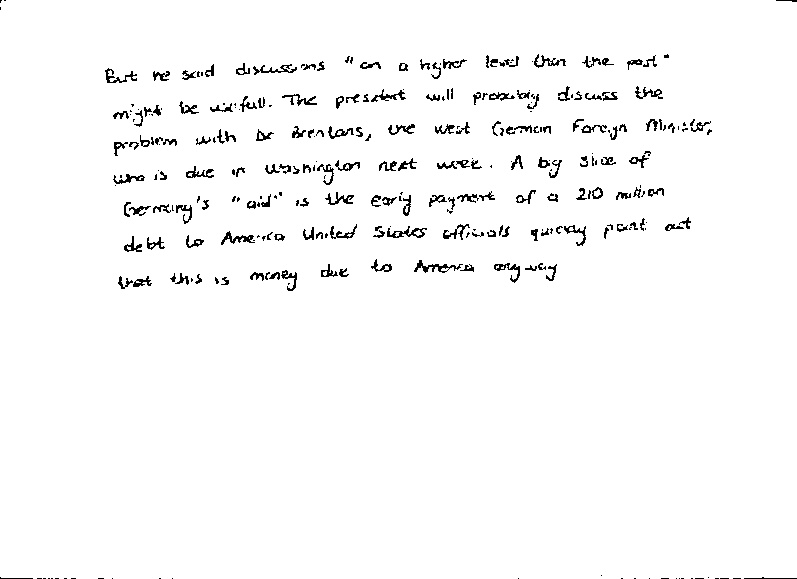 But he said discussions "on a higher level than the past"
might be usefull. The president will probably discuss the
problem with Dr Brentans, the west German Foreign Minister,
who is due in Washington next week. A big slice of
Germany's "aid" is the early payment of a 210 million
debt to America United States officials quickly point out
that this is money due to America anyway